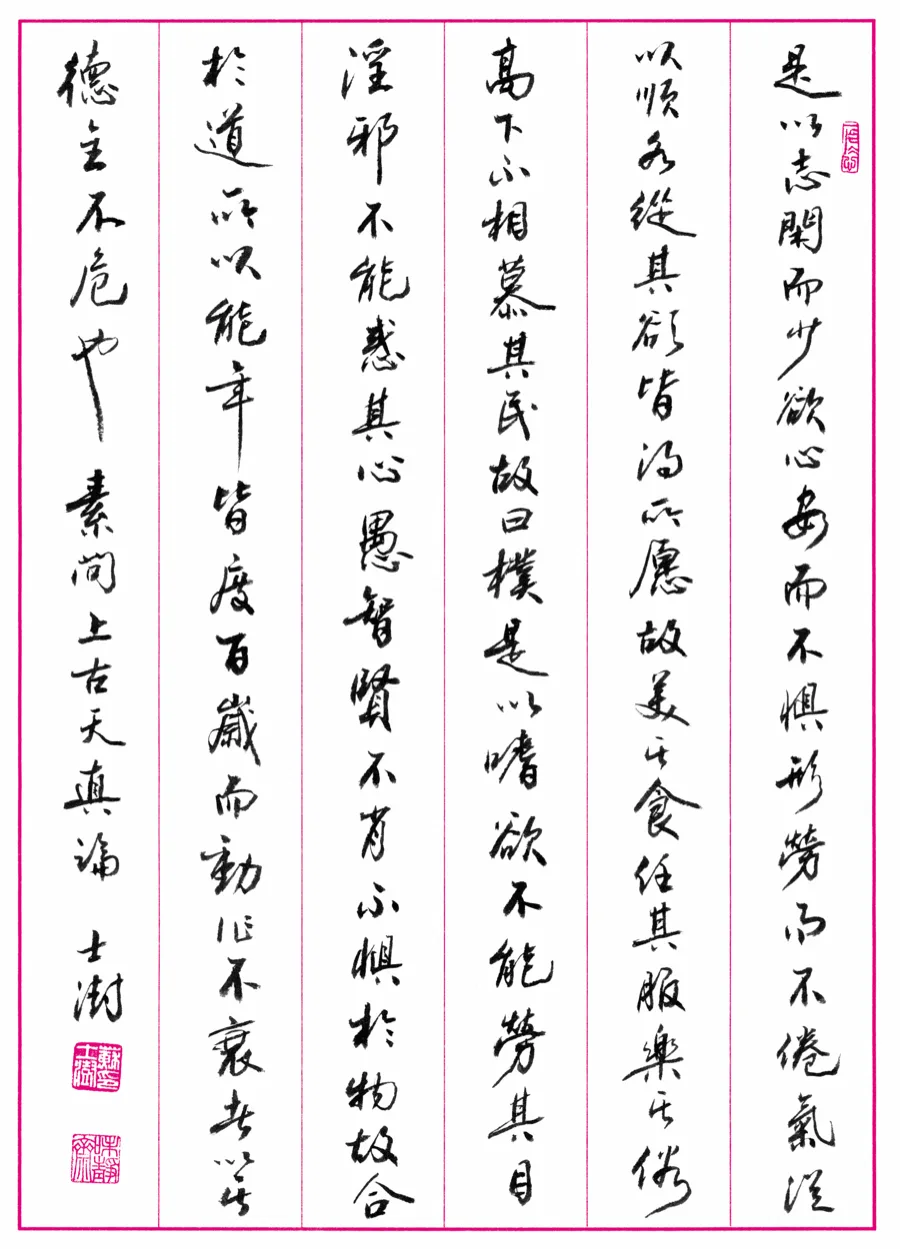 是以志閑而少欲心安而不懼形勞而不倦氣從
以順各從其欲皆得所愿故美其食任其服樂其俗
高下不相慕其民故曰樸是以嗜欲不能勞其目
淫邪不能惑其心愚智賢不肖不懼於物故合
於道所以能年皆度百歲而動作不衰者以其
德全不危也 素問上古天真論 士澍
蘇印士澍